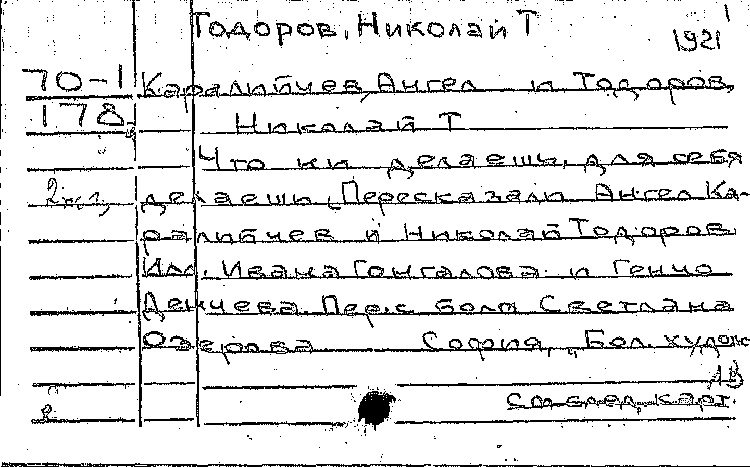 Тодоров, Николай Т
1921
70-1 Каралийчев, Ангел и Тодоров,
178 Николай Т
Что ни делаешь, для себя
2 экз, делаешь, Пересказали Ангел Ка-
ралийчев и Николай Тодоров
Илл. Ивана Гонгалова и Генчо
Денчева. Пер. с болг Светлана
Озерова София, „Бол. худож
См след. карт.